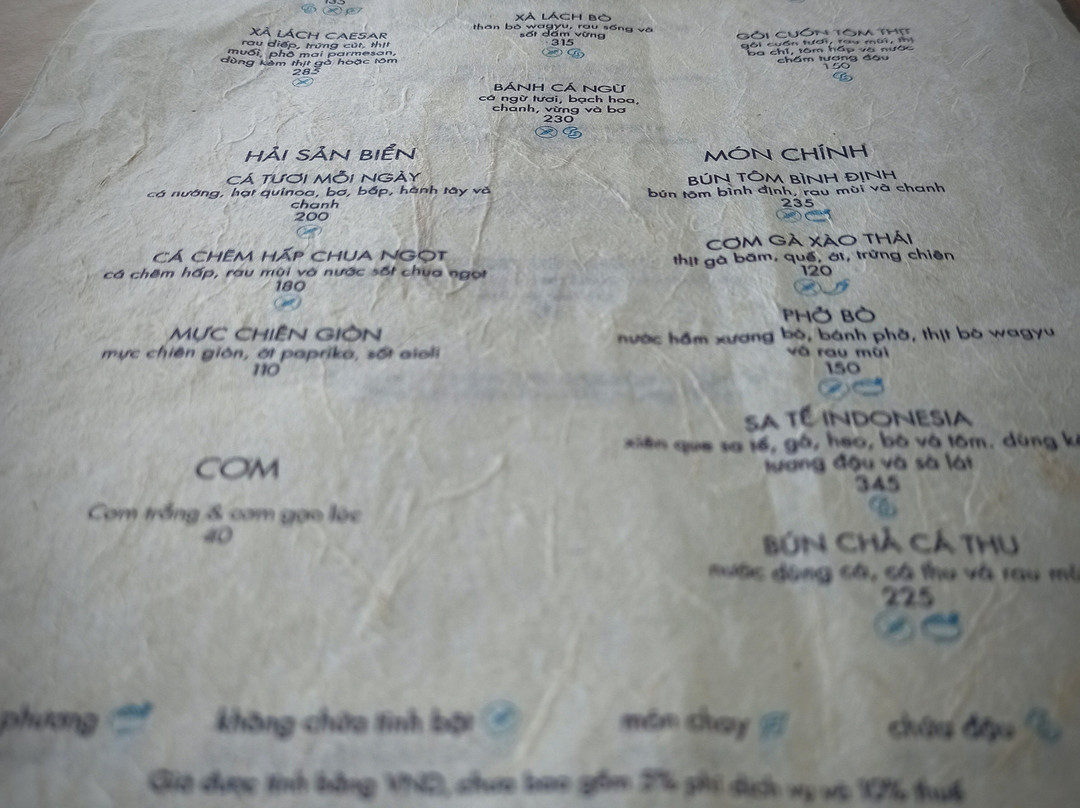 135
XÀ LÁCH CAESAR
rau diếp, trứng cút, thịt
muối, phô mai parmesan,
dùng kèm thịt gà hoặc tôm
285
XÀ LÁCH BÒ
thăn bò wagyu, rau sống và
sốt dấm vừng
315
GỎI CUỐN TÔM THỊT
gỏi cuốn tươi, rau mùi, thịt
ba chỉ, tôm hấp và nước
chấm tương đậu
150
BÁNH CÁ NGỪ
cá ngừ tươi, bạch hoa,
chanh, vừng và bơ
230
HẢI SẢN BIỂN
CÁ TƯƠI MỖI NGÀY
cá nướng, hạt quinoa, bơ, bắp, hành tây và
chanh
200
CÁ CHẼM HẤP CHUA NGỌT
cá chẽm hấp, rau mùi và nước sốt chua ngọt
180
MỰC CHIÊN GIÒN
mực chiên giòn, ớt paprika, sốt aioli
110
CƠM
Cơm trắng & cơm gạo lức
40
MÓN CHÍNH
BÚN TÔM BÌNH ĐỊNH
bún tôm bình định, rau mùi và chanh
235
CƠM GÀ XÀO THÁI
thịt gà băm, quế, ớt, trứng chiên
120
PHỞ BÒ
nước hầm xương bò, bánh phở, thịt bò wagyu
và rau mùi
150
SA TẾ INDONESIA
xiên que sa tế, gà, heo, bò và tôm. dùng
tương đậu và sà lát
345
BÚN CHẢ CÁ THU
nước dùng cá, cá thu và rau
225
phương không chứa tinh bột món chay chứa đậu
Giá được tính bằng VND, chưa bao gồm 5% phí dịch vụ và 10% thuế